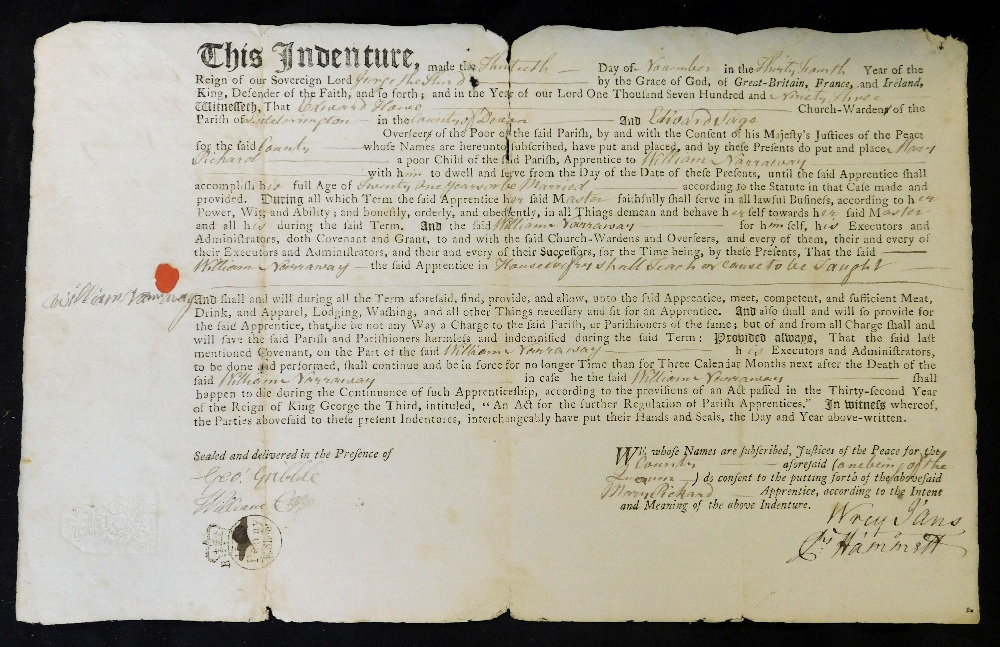 This Indenture, made the Thirtieth Day of November in the Thirty fourth Year of the
Reign of our Sovereign Lord George the Third by the Grace of God, of Great-Britain, France, and Ireland,
King, Defender of the Faith, and so forth; and in the Year of our Lord One Thousand Seven Hundred and Ninety three
Witnesseth, That Edward Church-Wardens of the
Parish of in the County of Devon And Edward
Overseers of the Poor of the said Parish, by and with the Consent of his Majesty's Justices of the Peace
for the said County whose Names are hereunto subscribed, have put and placed, and by these Presents do put and place Mary
Pickard a poor Child of the said Parish, Apprentice to William Narraway
with him to dwell and serve from the Day of the Date of these Presents, until the said Apprentice shall
accomplish her full Age of Twenty One Years or be Married according to the Statute in that Case made and
provided. During all which Term the said Apprentice her said Master faithfully shall serve in all lawful Business, according to her
Power, Wit, and Ability; and honestly, orderly, and obediently, in all Things demean and behave herself towards her said Master
and all his during the said Term. And the said William Narraway for himself, his Executors and
Administrators, doth Covenant and Grant, to and with the said Church-Wardens and Overseers, and every of them, their and every of
their Executors and Administrators, and their and every of their Successors, for the Time being, by these Presents, That the said
William Narraway the said Apprentice in Housewifery shall Teach or cause to be Taught
William Narraway
And shall and will during all the Term aforesaid, find, provide, and allow, unto the said Apprentice, meet, competent, and sufficient Meat,
Drink, and Apparel, Lodging, Washing, and all other Things necessary and fit for an Apprentice. And also shall and will so provide for
the said Apprentice, that he be not any Way a Charge to the said Parish, or Parishioners of the same; but of and from all Charge shall and
will save the said Parish and Parishioners harmless and indemnified during the said Term: Provided always, That the said last
mentioned Covenant, on the Part of the said William Narraway his Executors and Administrators,
to be done and performed, shall continue and be in force for no longer Time than for Three Calendar Months next after the Death of the
said William Narraway in case he the said William Narraway shall
happen to die during the Continuance of such Apprenticeship, according to the provisions of an Act passed in the Thirty-second Year
of the Reign of King George the Third, intituled, "An Act for the further Regulation of Parish Apprentices." In witness whereof,
the Parties abovesaid to these present Indentures, interchangeably have put their Hands and Seals, the Day and Year above-written.
Sealed and delivered in the Presence of
Geo. Gribble
William
WE, whose Names are subscribed, Justices of the Peace for the
County aforesaid (one being of the
Quorum) do consent to the putting forth of the abovesaid
Mary Pickard Apprentice, according to the Intent
and Meaning of the above Indenture.
Wrey I'ans
Hammett